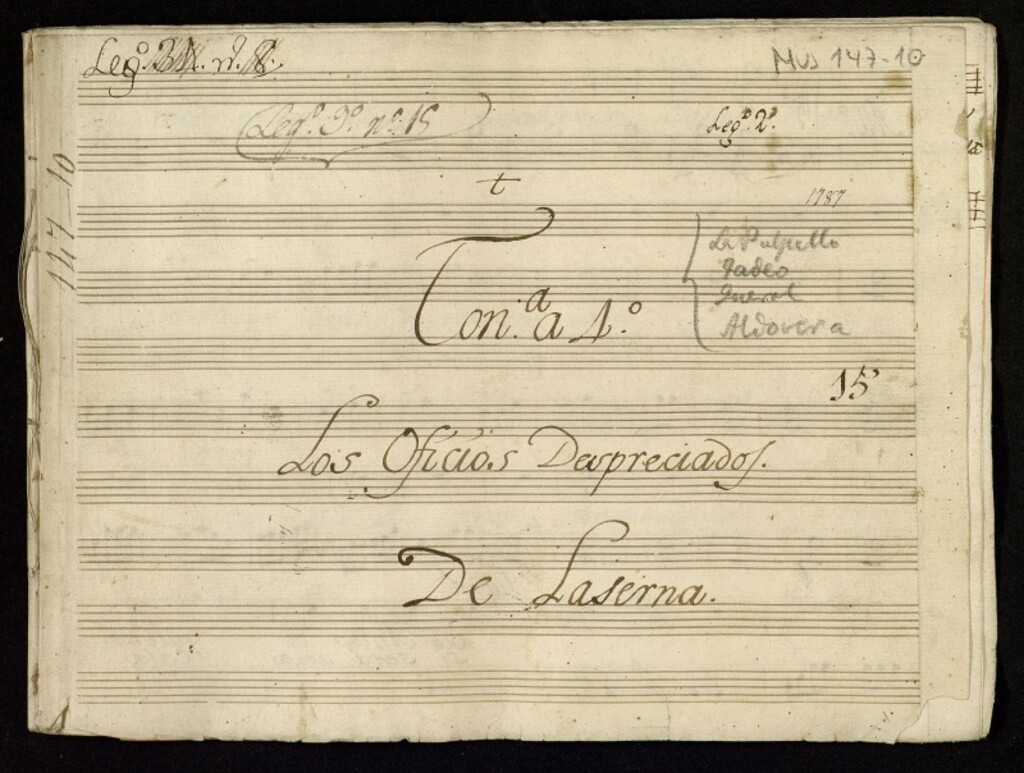 Leg.º
Mus 147-10
Leg.º 9.º n.º 15
Leg.º 2.º
147-10
t
1787
Ton.ª a 4.º
La Pulpillo
Tadeo
Querol
Aldovera
15
Los Oficios Despreciados.
De Laserna.